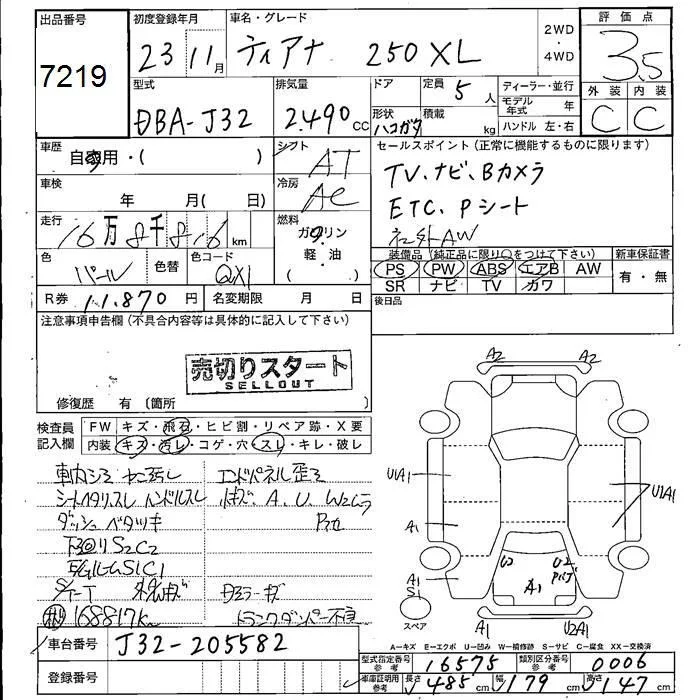 出品番号
7219
初度登録年月
23 11月
車名・グレード
ティアナ 250XL
2WD
・
4WD
評価点
3.5
外装 内装
C C
型式
DBA-J32
排気量
2.490 CC
ドア
定員
5人
形状
ハコガタ
積載
kg
ディーラー・並行
モデル年式 年
ハンドル 左・右
車歴
自家用・( )
シフト
AT
セールスポイント(正常に機能するものに限ります)
TV、ナビ、Bカメラ
ETC、Pシート
社外AW
車検
年 月( 日)
冷房
AC
走行
16万8千816km
燃料
ガソリン
軽・油
( )
色
パール
色替
色コード
QX1
装備品(純正品に限り○をつけて下さい)
PS PW ABS エアB AW
SR ナビ TV カワ
新車保証書
有・無
R券 11.870円
名変期限 月 日
後日品
注意事項申告欄(不具合内容等は具体的に記入して下さい)
売切りスタート
SELLOUT
修復歴 有 〔箇所 〕
検査員記入欄
FW キズ・飛石・ヒビ割・リペア跡・X要
内装 キズ・汚レ・コゲ・穴・スレ・キレ・破レ
エンドパネル歪ミ
シートヘタリスレ ハンドルスレ
A、U、W2ムラ
ダッシュベタツキ
下回りS2C2
168817km
トランクダンパー不良
車台番号
J32-205582
登録番号
A2 A2
U1A1
U1A1
A1
A1
S1
A1
A1 U2A1
スペア
A―キズ E―エクボ U―凹み W―補修跡 S―サビ C―腐食 XX―交換済
型式指定番号 参考 16575
類別区分番号 参考 0006
車庫証明用 参考 長さ 485cm 幅 179cm 高さ 147cm